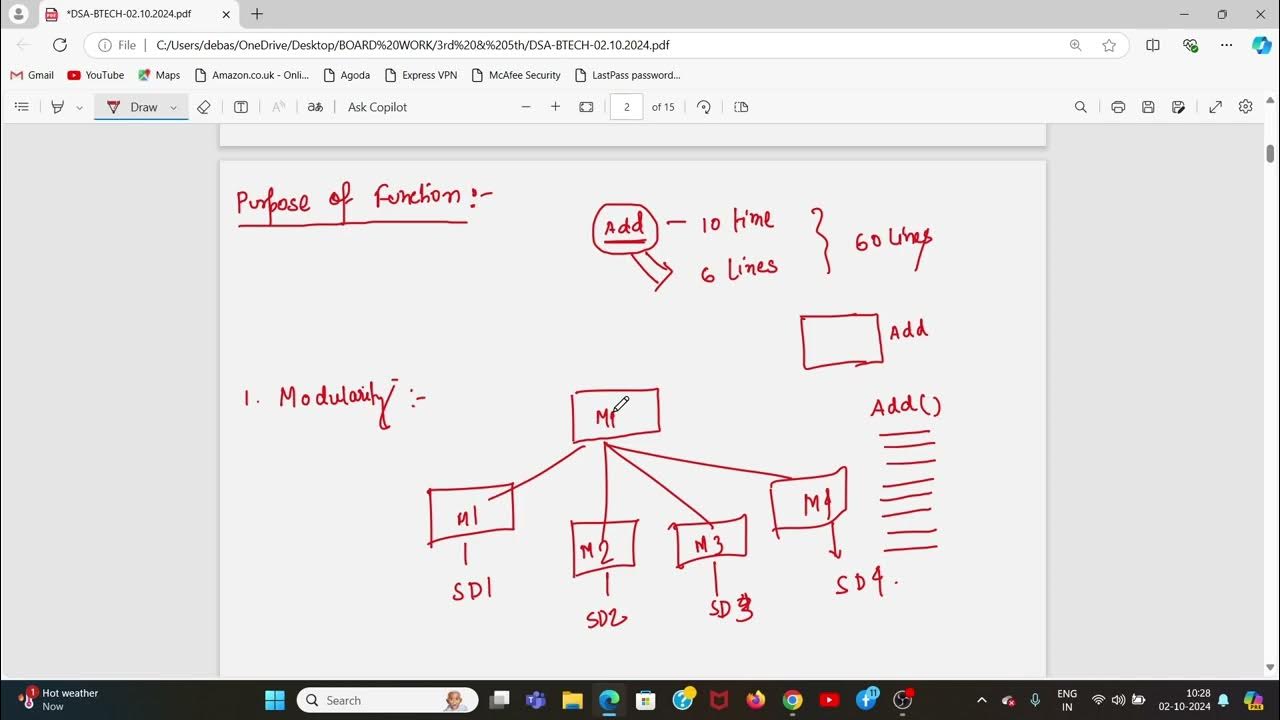 *DSA-BTECH-02.10.2024.pdf
File C:/Users/debas/OneDrive/Desktop/BOARD%20WORK/3rd%20&%205th/DSA-BTECH-02.10.2024.pdf
Gmail YouTube Maps Amazon.co.uk - Onli... Agoda Express VPN McAfee Security LastPass password...
Draw Ask Copilot 2 of 15
Purpose of Function :-
Add - 10 time
60 lines
6 lines
Add
1. Modularity :-
Add()
M1 M2 M3 M4
SD1 SD2 SD3 SD4.
Hot weather
Now
Search
ENG
IN
10:28
02-10-2024